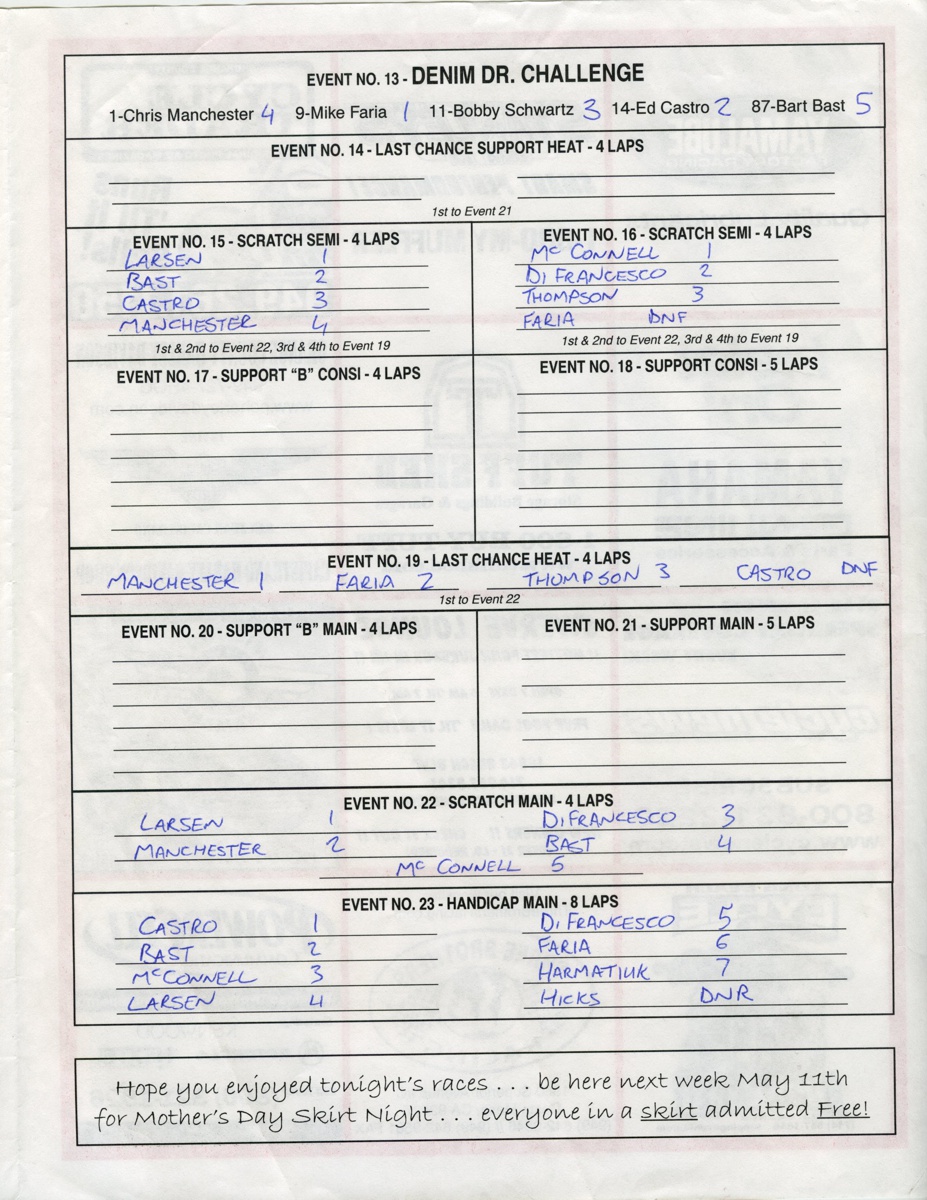 EVENT NO. 13 - DENIM DR. CHALLENGE
1-Chris Manchester 4 9-Mike Faria 1 11-Bobby Schwartz 3 14-Ed Castro 2 87-Bart Bast 5
EVENT NO. 14 - LAST CHANCE SUPPORT HEAT - 4 LAPS
1st to Event 21
EVENT NO. 15 - SCRATCH SEMI - 4 LAPS
LARSEN 1
BAST 2
CASTRO 3
MANCHESTER 4
1st & 2nd to Event 22, 3rd & 4th to Event 19
EVENT NO. 16 - SCRATCH SEMI - 4 LAPS
McCONNELL 1
DiFRANCESCO 2
THOMPSON 3
FARIA DNF
1st & 2nd to Event 22, 3rd & 4th to Event 19
EVENT NO. 17 - SUPPORT “B” CONSI - 4 LAPS
EVENT NO. 18 - SUPPORT CONSI - 5 LAPS
EVENT NO. 19 - LAST CHANCE HEAT - 4 LAPS
MANCHESTER 1 FARIA 2 THOMPSON 3 CASTRO DNF
1st to Event 22
EVENT NO. 20 - SUPPORT “B” MAIN - 4 LAPS
EVENT NO. 21 - SUPPORT MAIN - 5 LAPS
EVENT NO. 22 - SCRATCH MAIN - 4 LAPS
LARSEN 1 DiFRANCESCO 3
MANCHESTER 2 BAST 4
McCONNELL 5
EVENT NO. 23 - HANDICAP MAIN - 8 LAPS
CASTRO 1 DiFRANCESCO 5
BAST 2 FARIA 6
McCONNELL 3 HARMATIUK 7
LARSEN 4 HICKS DNR
Hope you enjoyed tonight's races . . . be here next week May 11th
for Mother's Day Skirt Night . . . . everyone in a skirt admitted Free!